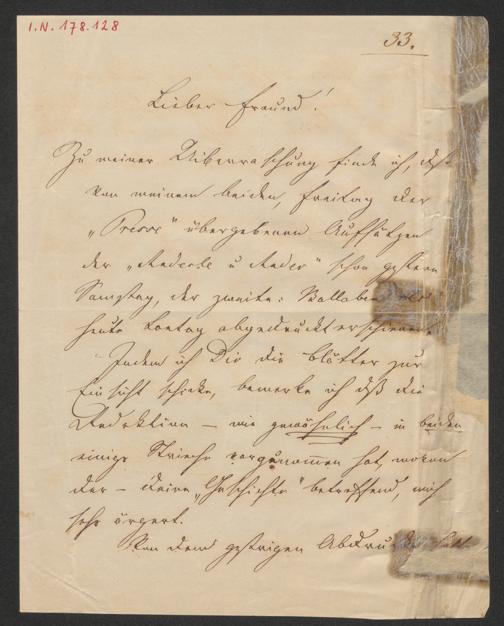 I.N. 178.128
33.
Lieber Freund!
Zu meiner Ueberraschung finde ich, daß
von meinen beiden, Freitag der
„Presse“ übergebenen Aufsätzen
der „ u “ schon gestern
Samstag, der zweite:
heute abgedruckt erschienen
Indem ich Dir die Blätter zur
Einsicht schicke, bemerke ich daß die
Redaktion – wie gewöhnlich – in beiden
einige Striche vorgenommen hat, wovon
der – Deine „Geschichte“ betreffend, mich
sehr ärgert.
Von dem gestrigen